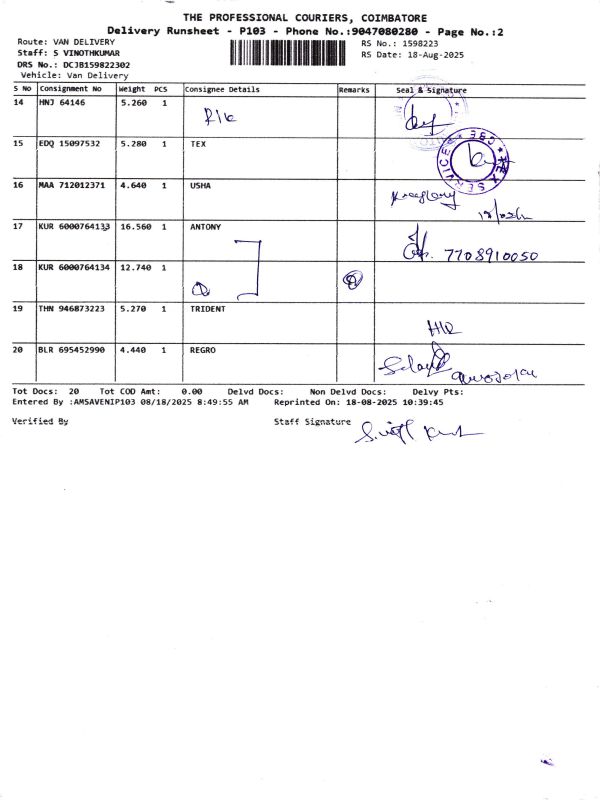 THE PROFESSIONAL COURIERS, COIMBATORE
Delivery Runsheet - P103 - Phone No.:9047080280 - Page No.:2
Route: VAN DELIVERY RS No.: 1598223
Staff: S VINOTHKUMAR RS Date: 18-Aug-2025
DRS No.: DCJB159822302
Vehicle: Van Delivery
S No Consignment No Weight PCS Consignee Details Remarks Seal & Signature
14 HNJ 64146 5.260 1
15 EDQ 15097532 5.280 1 TEX
SERVICES CBE
16 MAA 712012371 4.640 1 USHA
17 KUR 6000764133 16.560 1 ANTONY
7708910050
18 KUR 6000764134 12.740 1
19 THN 946873223 5.270 1 TRIDENT
20 BLR 695452990 4.440 1 REGRO
Tot Docs: 20 Tot COD Amt: 0.00 Delvd Docs: Non Delvd Docs: Delvy Pts:
Entered By :AMSAVENIP103 08/18/2025 8:49:55 AM Reprinted On: 18-08-2025 10:39:45
Verified By Staff Signature